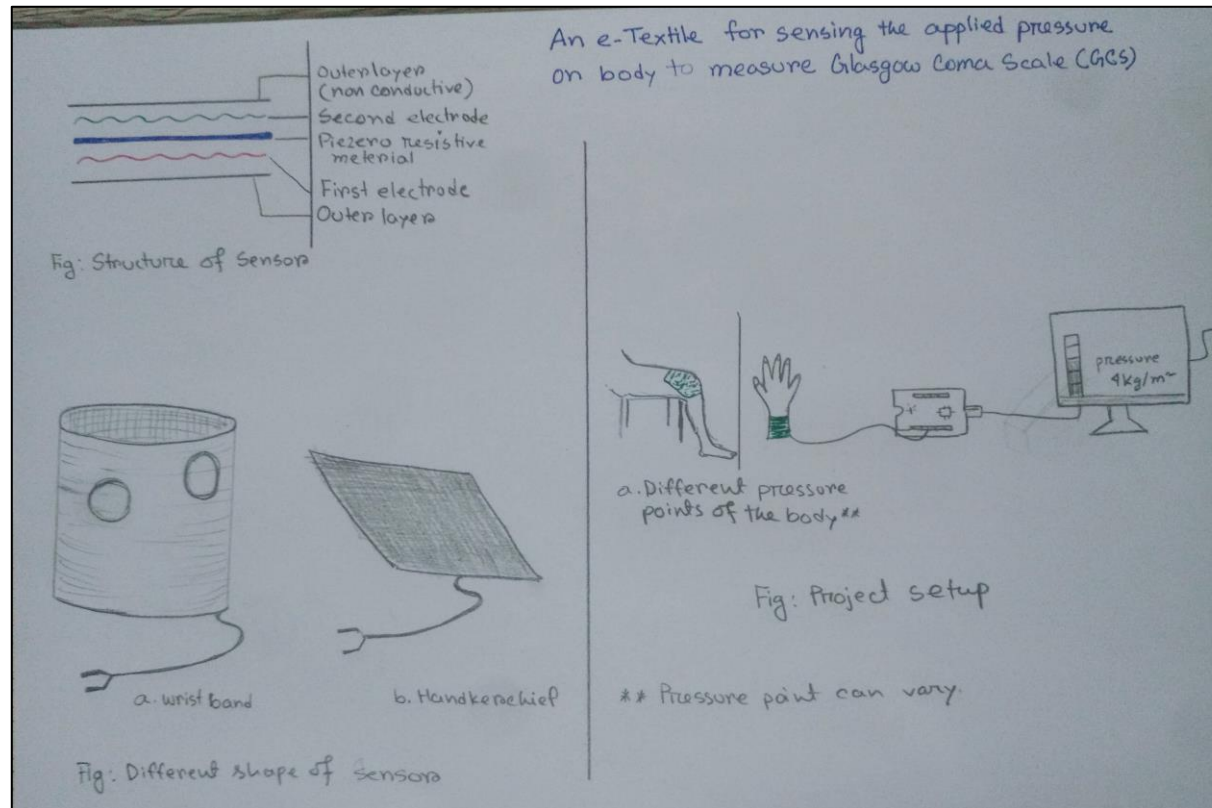 An e-Textile for sensing the applied pressure
on body to measure Glasgow Coma Scale (GCS)
Outer layer
(non conductive)
Second electrode
Piezero resistive
meterial
First electrode
Outer layer
Fig: Structure of Sensor
a. wrist band
b. Handkerchief
Fig: Different shape of sensor
pressure
4kg/m²
a. Different pressure
points of the body**
Fig: Project setup
** Pressure point can vary.